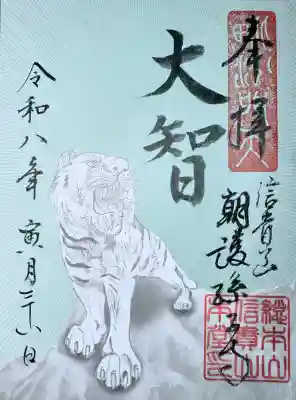 奉拝
大智
信貴山
朝護孫子寺
令和八年 寅月二十八日
総本山
信貴山
本堂印